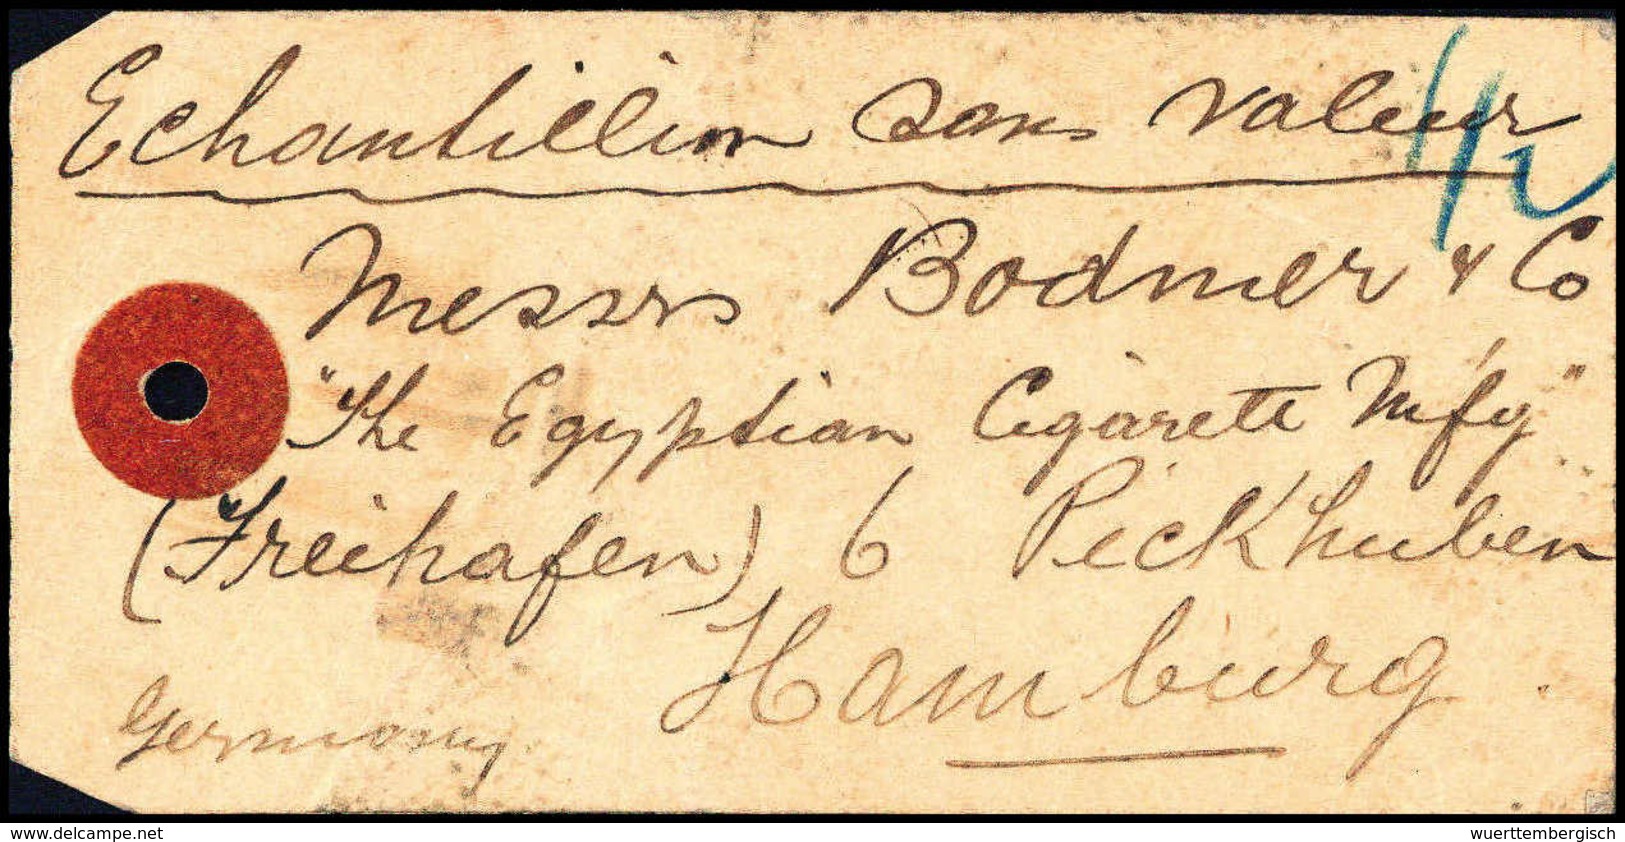 Echantillon sans valeur
Messrs Bodmer & Co
"The Egyptian Cigarete M'f'y"
(Freihafen) 6 Pickhuben
Hamburg.
Germany.
www.delcampe.net
wuerttembergisch